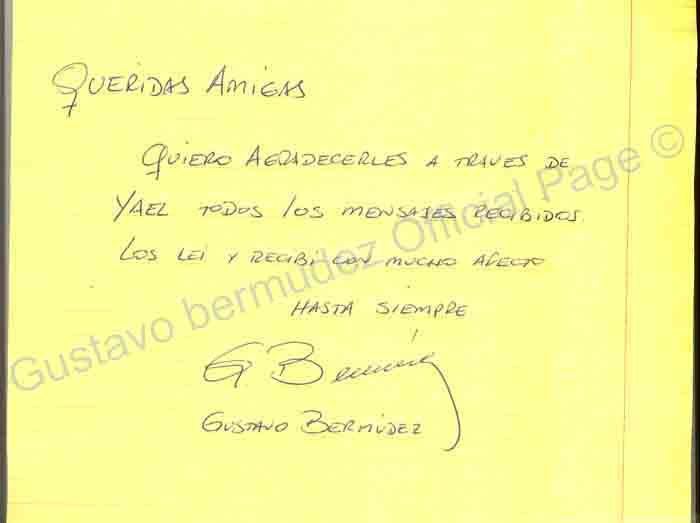 QUERIDAS AMIGAS
QUIERO AGRADECERLES A TRAVES DE
YAEL TODOS LOS MENSAJES RECIBIDOS.
LOS LEI Y RECIBÍ CON MUCHO AFECTO
HASTA SIEMPRE
G Bermúdez
GUSTAVO BERMÚDEZ
Gustavo bermudez Official Page ©